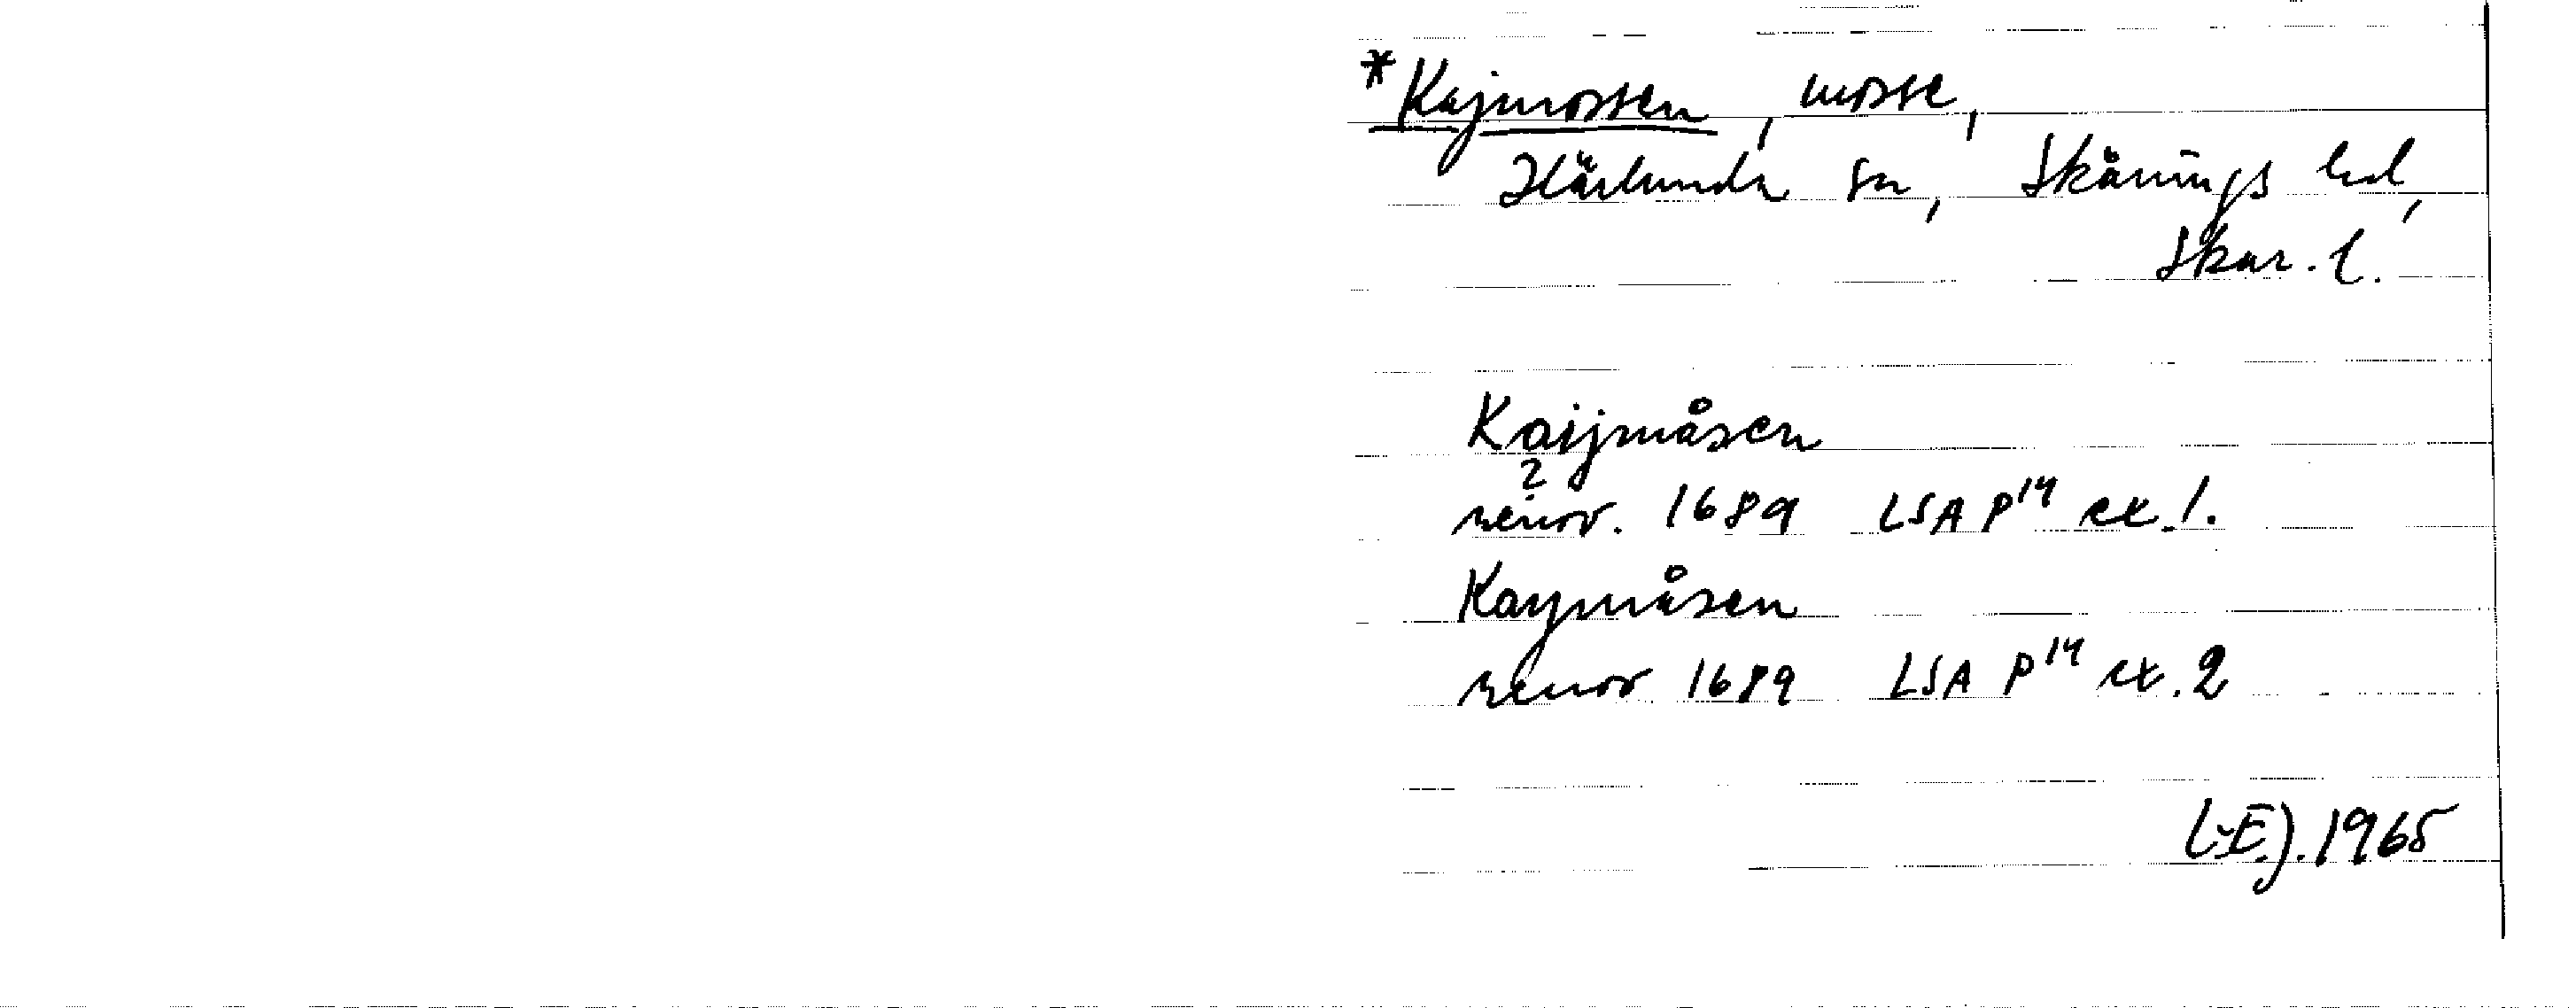 *Kajmossen, mosse,
Härlunda sn, Skånings hd,
Skar. l.
Kaijmåsen
?
renov. 1689 LSA P14 ex. 1.
Kaymåsen
renov 1689 LSA P14 ex. 2
L-EJ. 1965